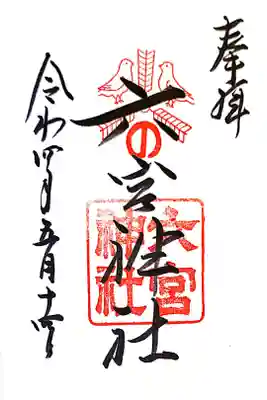 奉拝
六の宮神社
六宮神社
令和四年五月十